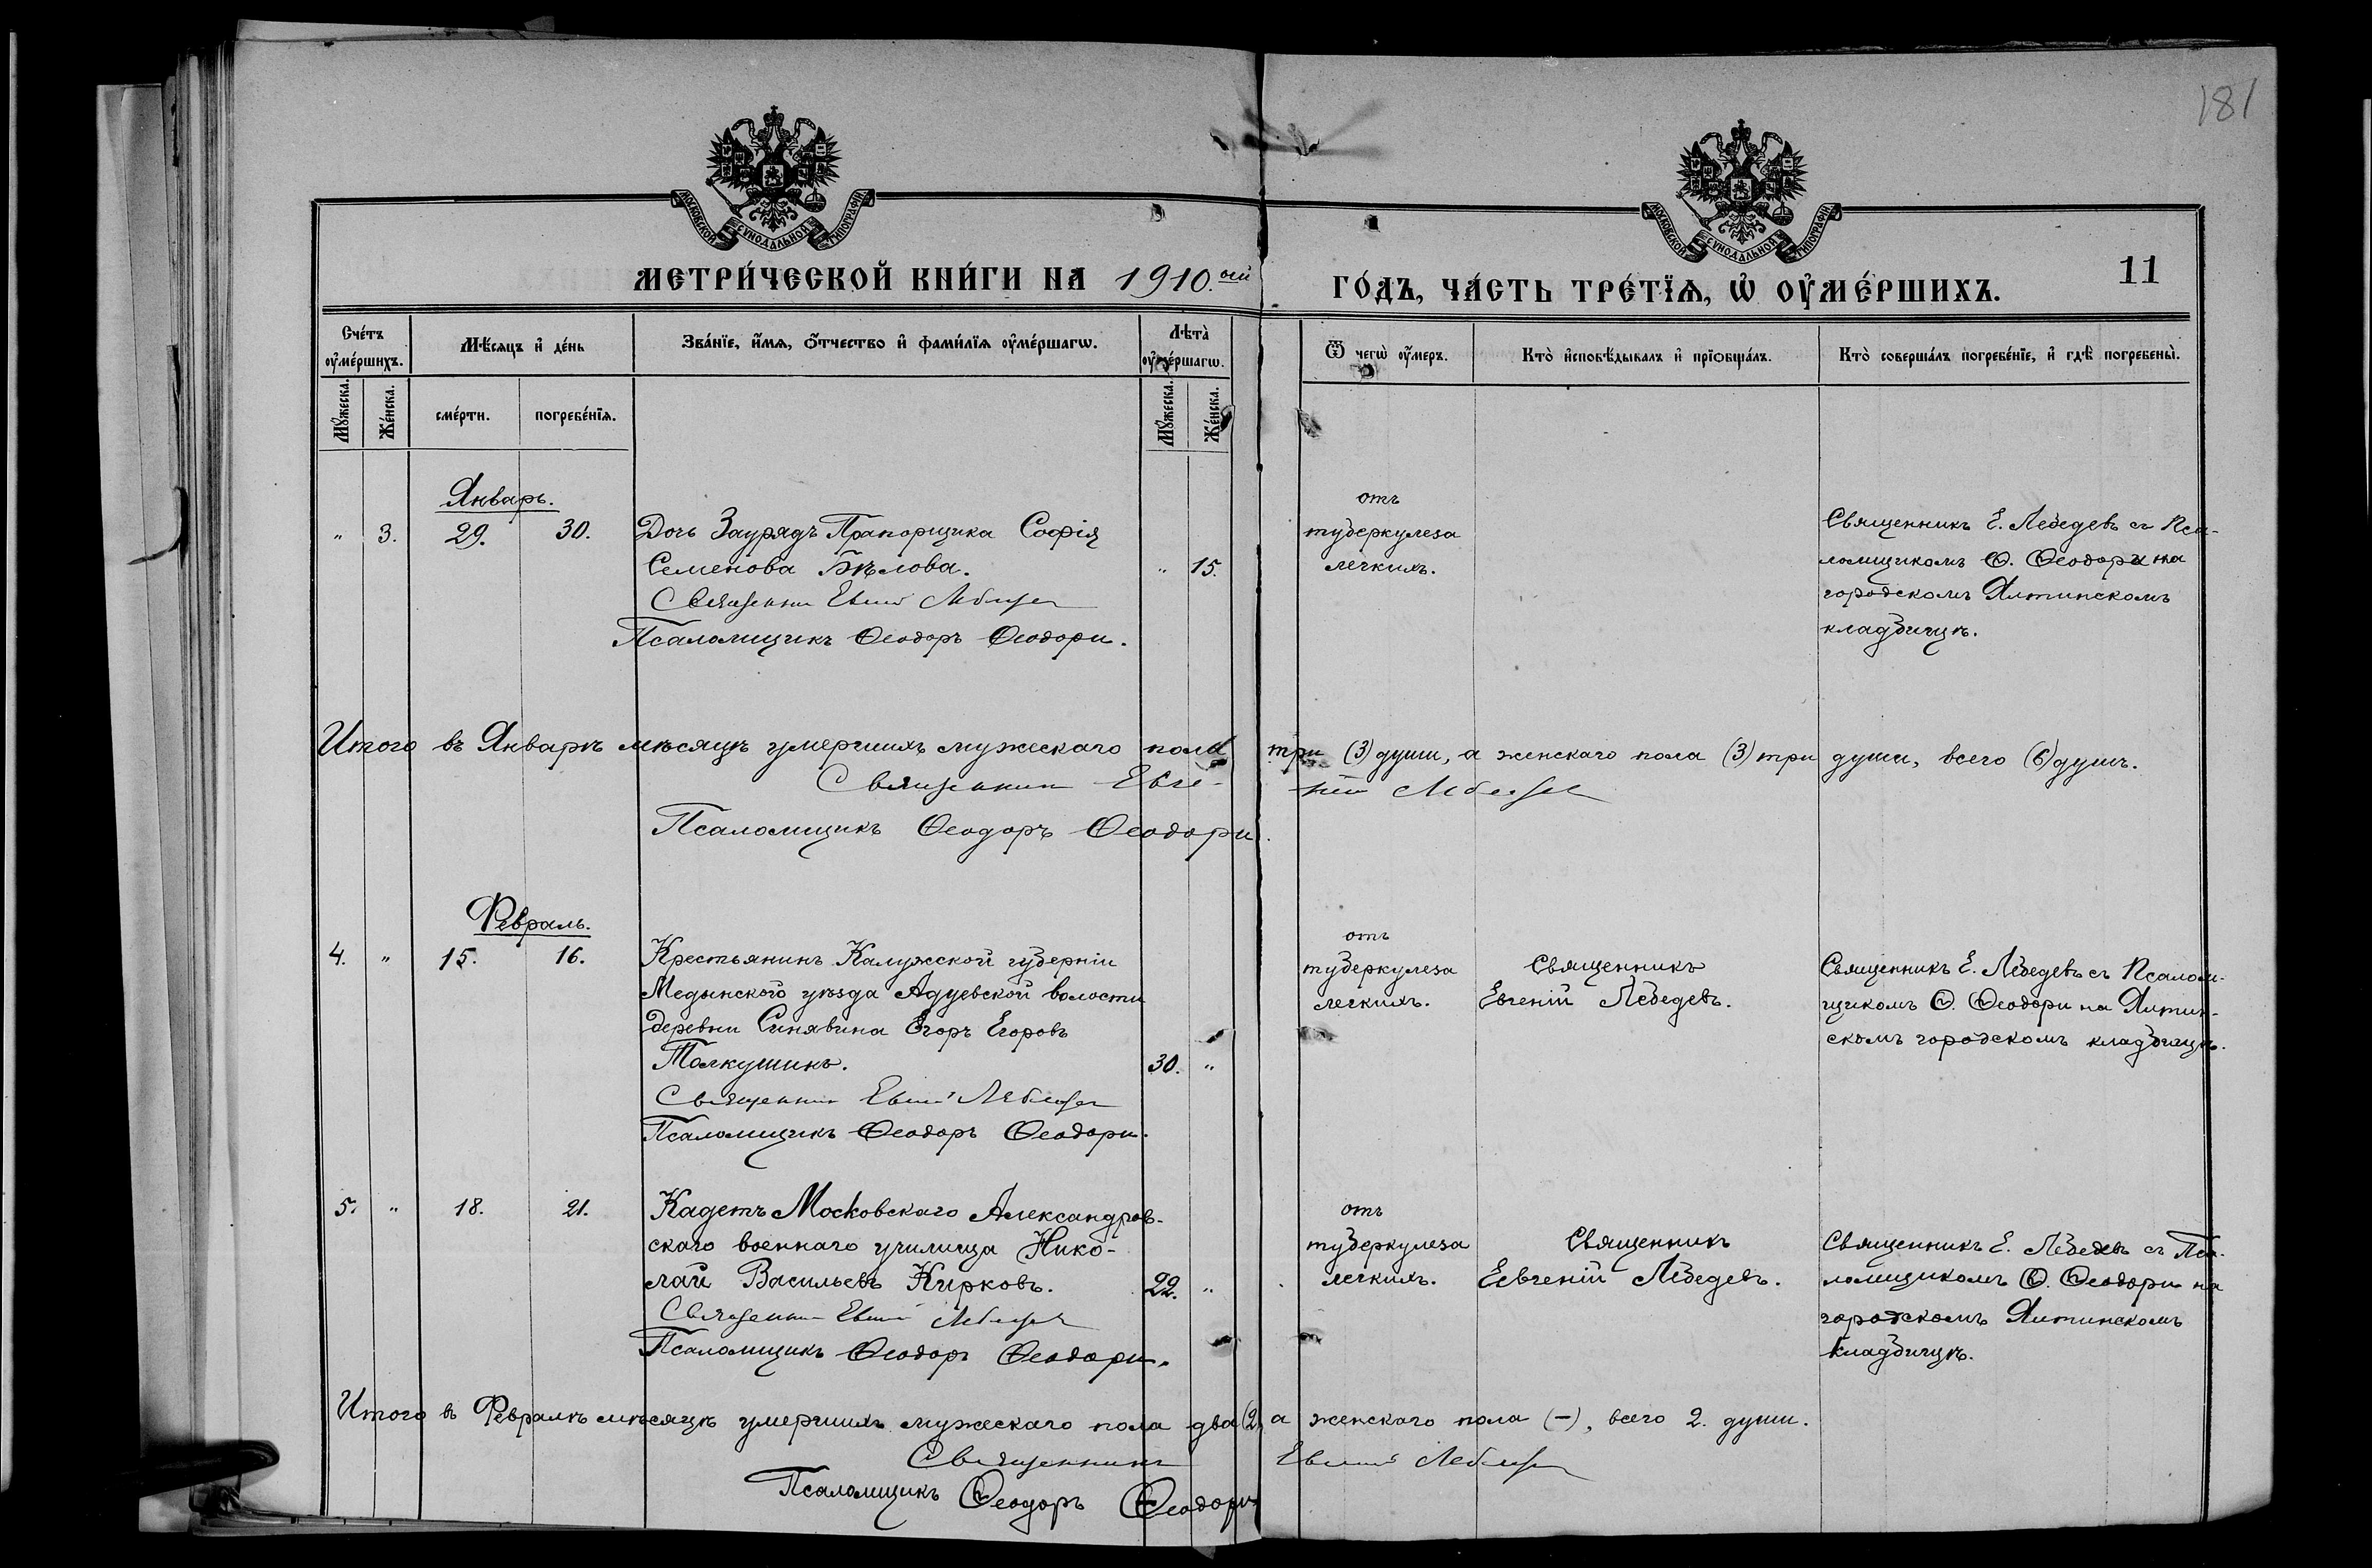 181
МОСКОВСКОЙ СѴНОДАЛЬНОЙ ТИПОГРАФІИ
МОСКОВСКОЙ СѴНОДАЛЬНОЙ ТИПОГРАФІИ
МЕТРИ́ЧЕСКОЙ КНИ́ГИ НА 1910.ый
ГО́ДЪ, ЧА́СТЬ ТРЕ́ТЇѦ, Ѡ҆ ОУ҆МЕ́РШИХЪ.
11
Сче́тъ оу҆ме́ршихъ.
Мѣ́сяцъ и҆ де́нь
Зва́нїе, и҆́мѧ, ѻ҆́тчество и҆ фами́лїѧ оу҆ме́ршагѡ.
Лѣта̀ оу҆ме́ршагѡ.
Ѿ чегѡ̀ оу҆́меръ.
Кто̀ и҆сповѣ́дывалъ и҆ прїѡбща́лъ.
Кто̀ соверша́лъ погребе́нїе, и҆ гдѣ̀ погребены̀.
Мꙋ́жеска.
Же́нска.
сме́рти.
погребе́нїѧ.
Мꙋ́жеска.
Же́нска.
Январь.
" 3. 29. 30.
Дочь Заурядъ Прапорщика Софія
Семенова Бѣлова. " 15.
Священник Евгеній Лебедев
Псаломщикъ Ѳеодоръ Ѳеодори.
отъ
туберкулеза
легкихъ.
Священникъ Е. Лебедевъ съ Пса-
ломщикомъ Ѳ. Ѳеодори на
городскомъ Ялтинскомъ
кладбищѣ.
Итого въ Январѣ мѣсяцѣ умершихъ мужескаго пола три (3) души, а женскаго пола (3) три души, всего (6) душъ.
Священник Евге-ній Лебедев
Псаломщикъ Ѳеодоръ Ѳеодори.
Февраль.
4. " 15. 16.
Крестьянинъ Калужской губерніи
Медынского уѣзда Адуевской волости
деревни Синявина Егоръ Егоровъ
Толкушинъ. 30. "
Священник Евгеній Лебедев
Псаломщикъ Ѳеодоръ Ѳеодори.
отъ
туберкулеза
легкихъ.
Священникъ
Евгеній Лебедевъ.
Священникъ Е. Лебедевъ съ Псалом-
щикомъ Ѳ. Ѳеодори на Ялтин-
скомъ городскомъ кладбищѣ.
5. " 18. 21.
Кадетъ Московскаго Александров-
скаго военнаго училища Нико-
лай Васильевъ Кирковъ. 22. "
Священник Евгеній Лебедев
Псаломщикъ Ѳеодоръ Ѳеодори.
отъ
туберкулеза
легкихъ.
Священникъ
Евгеній Лебедевъ.
Священникъ Е. Лебедевъ съ Пса-
ломщикомъ Ѳ. Ѳеодори на
городскомъ Ялтинскомъ
кладбищѣ.
Итого въ Февралѣ мѣсяцѣ умершихъ мужескаго пола два (2) а женскаго пола (–), всего 2. души.
Священникъ Евгеній Лебедев
Псаломщикъ Ѳеодоръ Ѳеодори